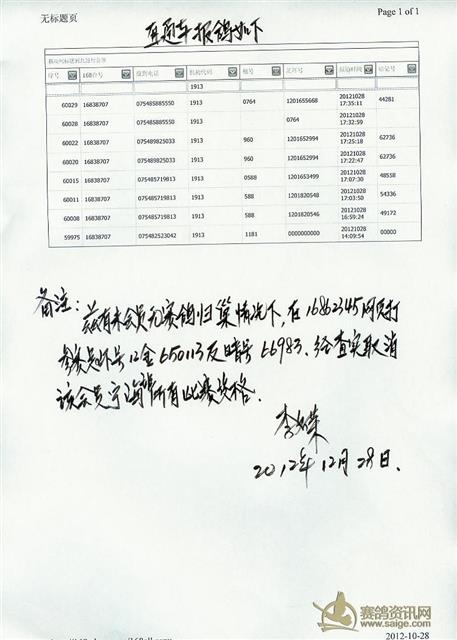 无标题页 Page 1 of 1
直通车报鸽如下
序号 168台号 报到电话 机构代码 棚号 足环号 报到时间 暗记号
1913
60029 16838707 075485885550 1913 0764 1201655668 20121028 17:35:11 44281
60028 16838707 075485885550 1913 0764 20121028 17:32:59
60022 16838707 075489825033 1913 960 1201652994 20121028 17:25:18 62736
60020 16838707 075489825033 1913 960 1201652994 20121028 17:22:47 62736
60015 16838707 075485719813 1913 0588 1201653499 20121028 17:07:30 48558
60011 16838707 075485719813 1913 588 1201820548 20121028 17:03:50 54336
60008 16838707 075485719813 1913 588 1201820546 20121028 16:59:24 49172
59975 16838707 075482523042 1913 1181 0000000000 20121028 14:09:54 00000
备注：兹有本会员无赛鸽归巢情况下，在16862345网页打
参赛足环号12金650113及暗号66983．经查实取消
该会员宁海华所有此赛资格．
2012年12月28日．
赛鸽资讯网
www.saige.com
2012-10-28